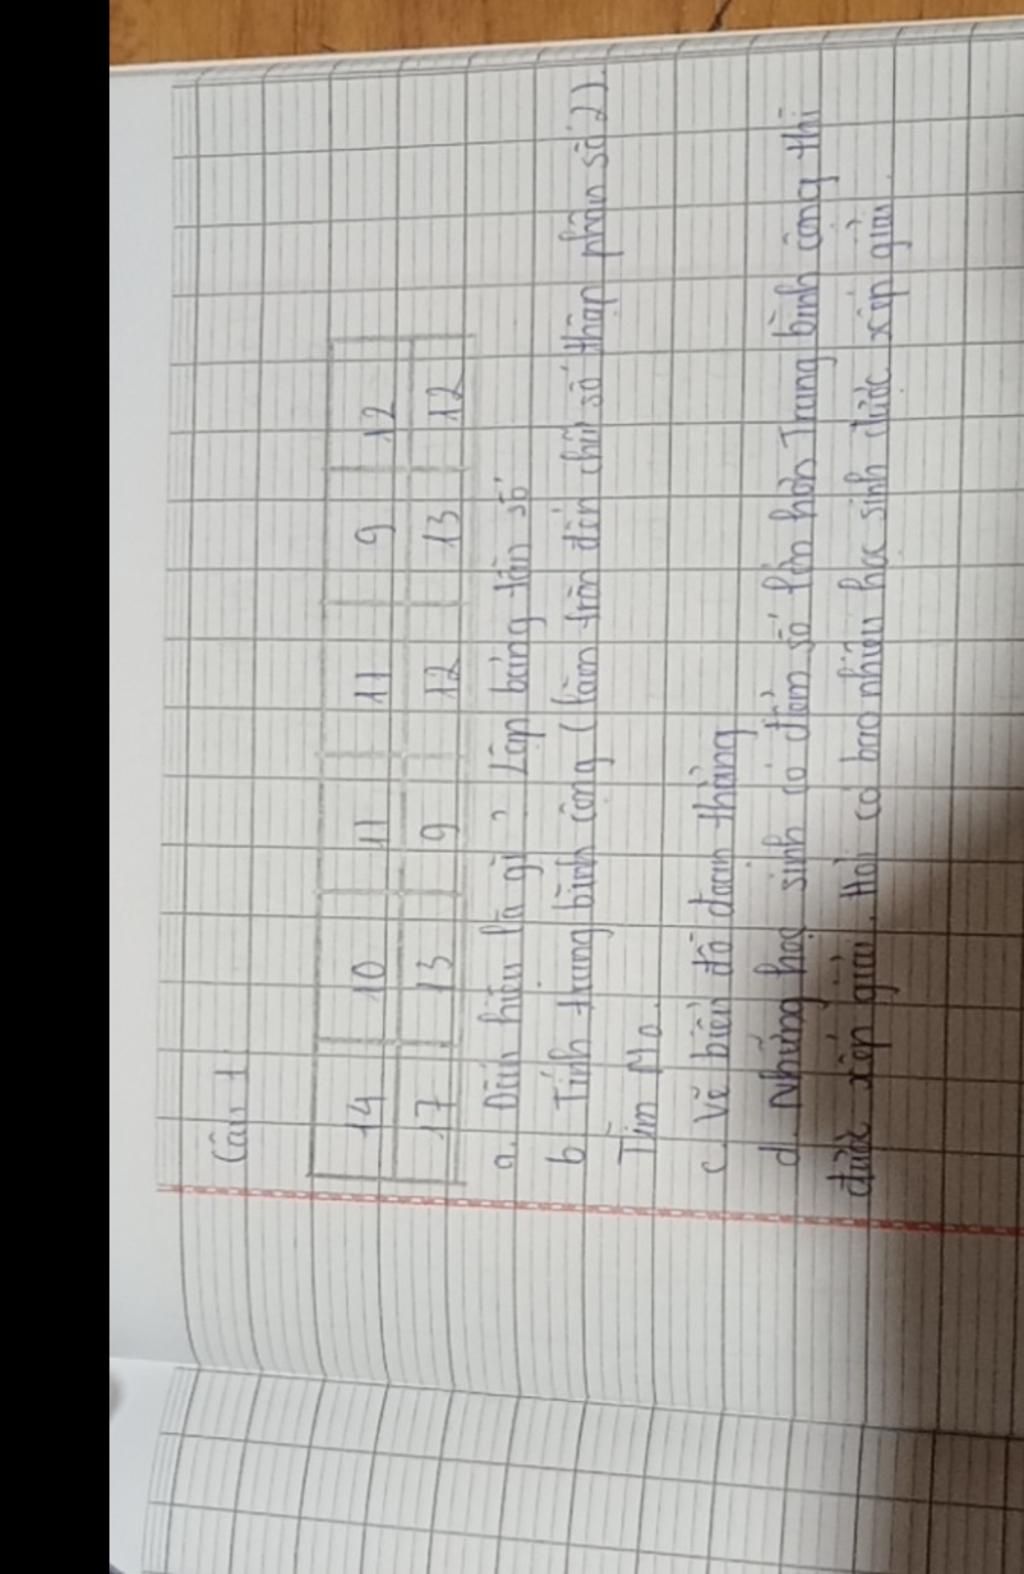 Câu 1
14 10 11 11 9 12
17 13 9 12 13 12
a. Dấu hiệu là gì ? Lập bảng tần số
b Tính trung bình cộng ( làm tròn đến chữ số thập phân số 2).
Tìm Mo.
c. Vẽ biểu đồ đoạn thẳng
d. Những học sinh có điểm số lớn hơn Trung bình cộng thì
được xếp giỏi. Hỏi có bao nhiêu học sinh được xếp giỏi.